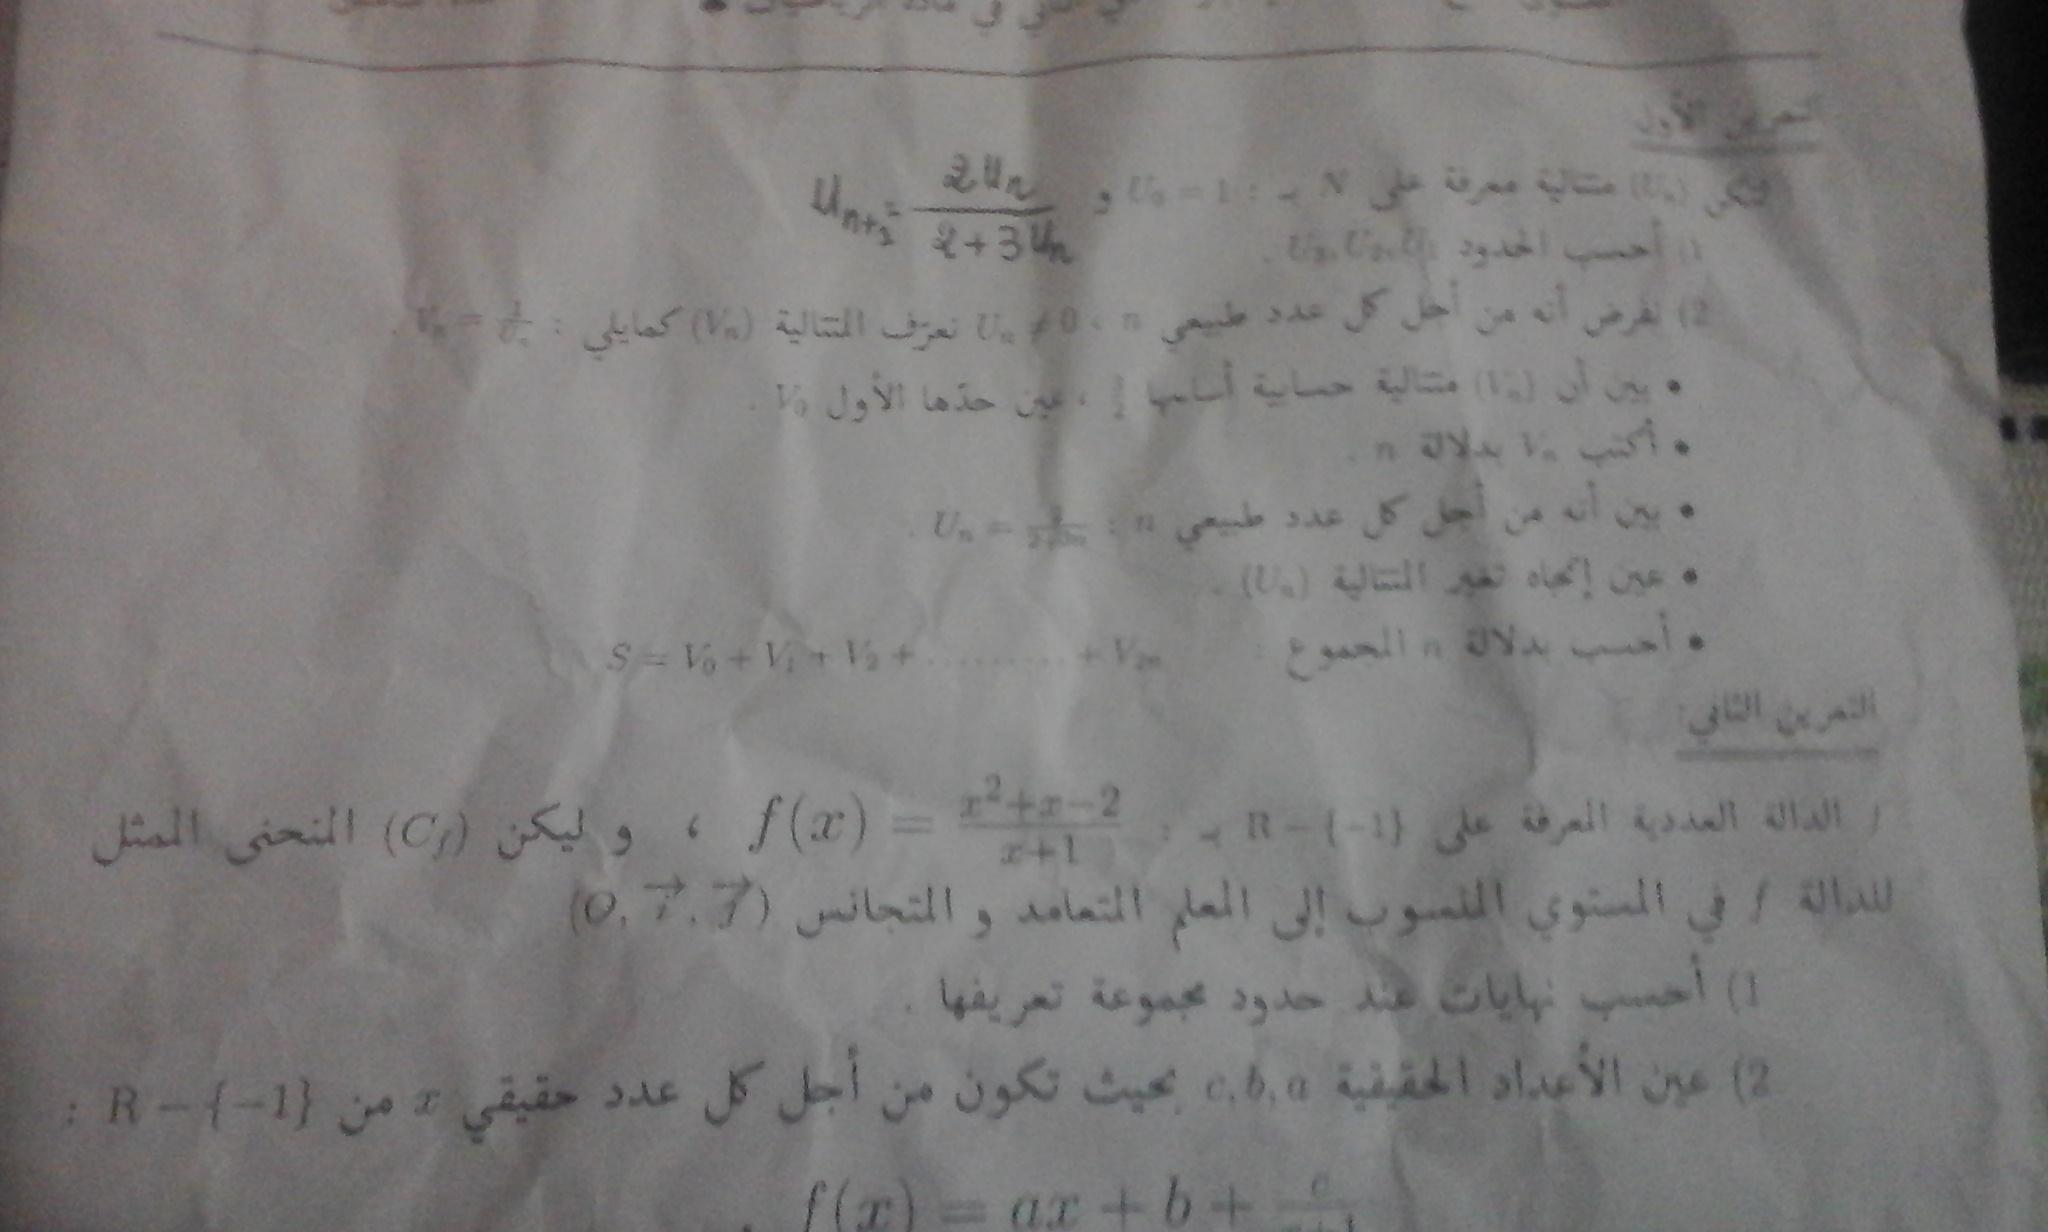 في مادة الرياضيات
التمرين الأول
لتكن (Uₙ) متتالية معرفة على N بـ : U₀ = 1 و uₙ₊₁ = 2uₙ / (2+3uₙ)
1) أحسب الحدود U₁, U₂, U₃ .
2) نفرض أنه من أجل كل عدد طبيعي n ، Uₙ ≠ 0 نعرّف المتتالية (Vₙ) كمايلي : Vₙ = 1/Uₙ .
• بين أن (Vₙ) متتالية حسابية أساسها 3/2 ، عين حدّها الأول V₀ .
• أكتب Vₙ بدلالة n .
• بين أنه من أجل كل عدد طبيعي n : Uₙ = 2/(2+3n) .
• عين إتجاه تغير المتتالية (Uₙ) .
• أحسب بدلالة n المجموع : S = V₀ + V₁ + V₂ + .......... + V₂ₙ
التمرين الثاني:
f الدالة العددية المعرفة على R − {−1} بـ : f(x) = (x²+x−2)/(x+1) ، و ليكن (C_f) المنحنى الممثل
للدالة f في المستوي المنسوب إلى المعلم المتعامد و المتجانس (O, i⃗, j⃗)
1) أحسب نهايات عند حدود مجموعة تعريفها .
2) عين الأعداد الحقيقية c, b, a بحيث تكون من أجل كل عدد حقيقي x من R − {−1} :
f(x) = ax + b + c/(x+1) .